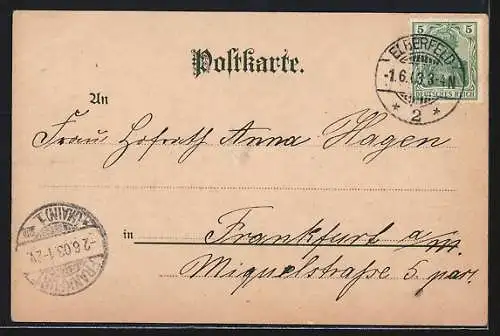 Postkarte.
5 5
DEUTSCHES REICH
ELBERFELD
-1.6.03.3-4N.
* 2 *
An
Frau Hofrath Anna Hagen
in Frankfurt a/m.
Miquelstraße 5 part.
FRANKFURT
(MAIN) 1
-2.6.03.1-2V.